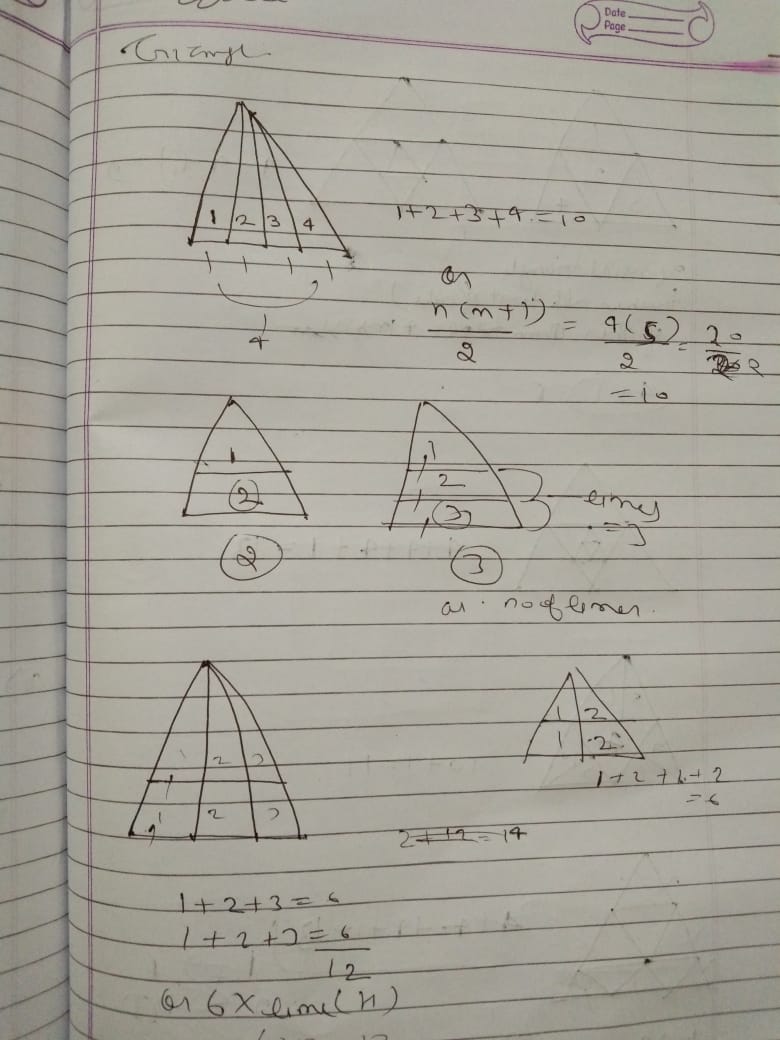 Date
Page
Triangl
1 2 3 4
1+2+3+4 = 10
1 1 1 1
or
4
n(n+1)/2 = 4(5)/2 = 20/2
= 10
1
②
②
1 1
2
1 ③
1
lines
= 3
③
or. no of lines.
1 2
1 2
1+2+1+2
= 6
1 2 3
1
1 2 3
1
2+12=14
1+2+3 = 6
1+2+3 = 6
12
or 6 X line(H)